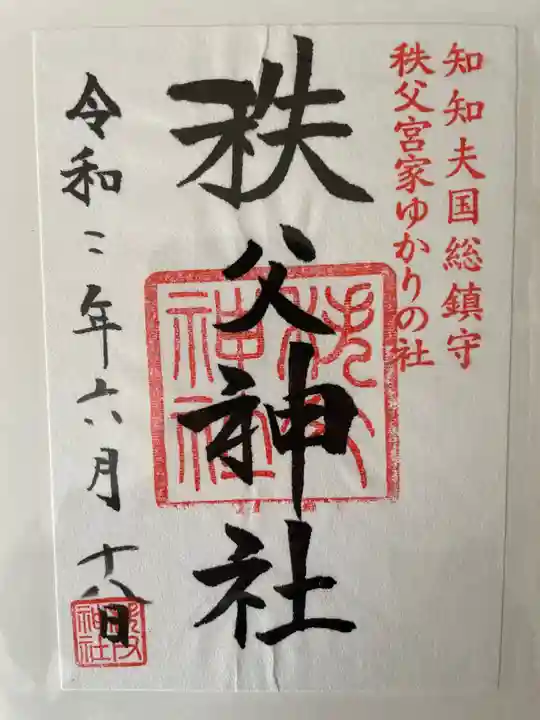 知知夫国総鎮守
秩父宮家ゆかりの社
秩父神社
秩父神社
令和二年六月十八日
秩父神社